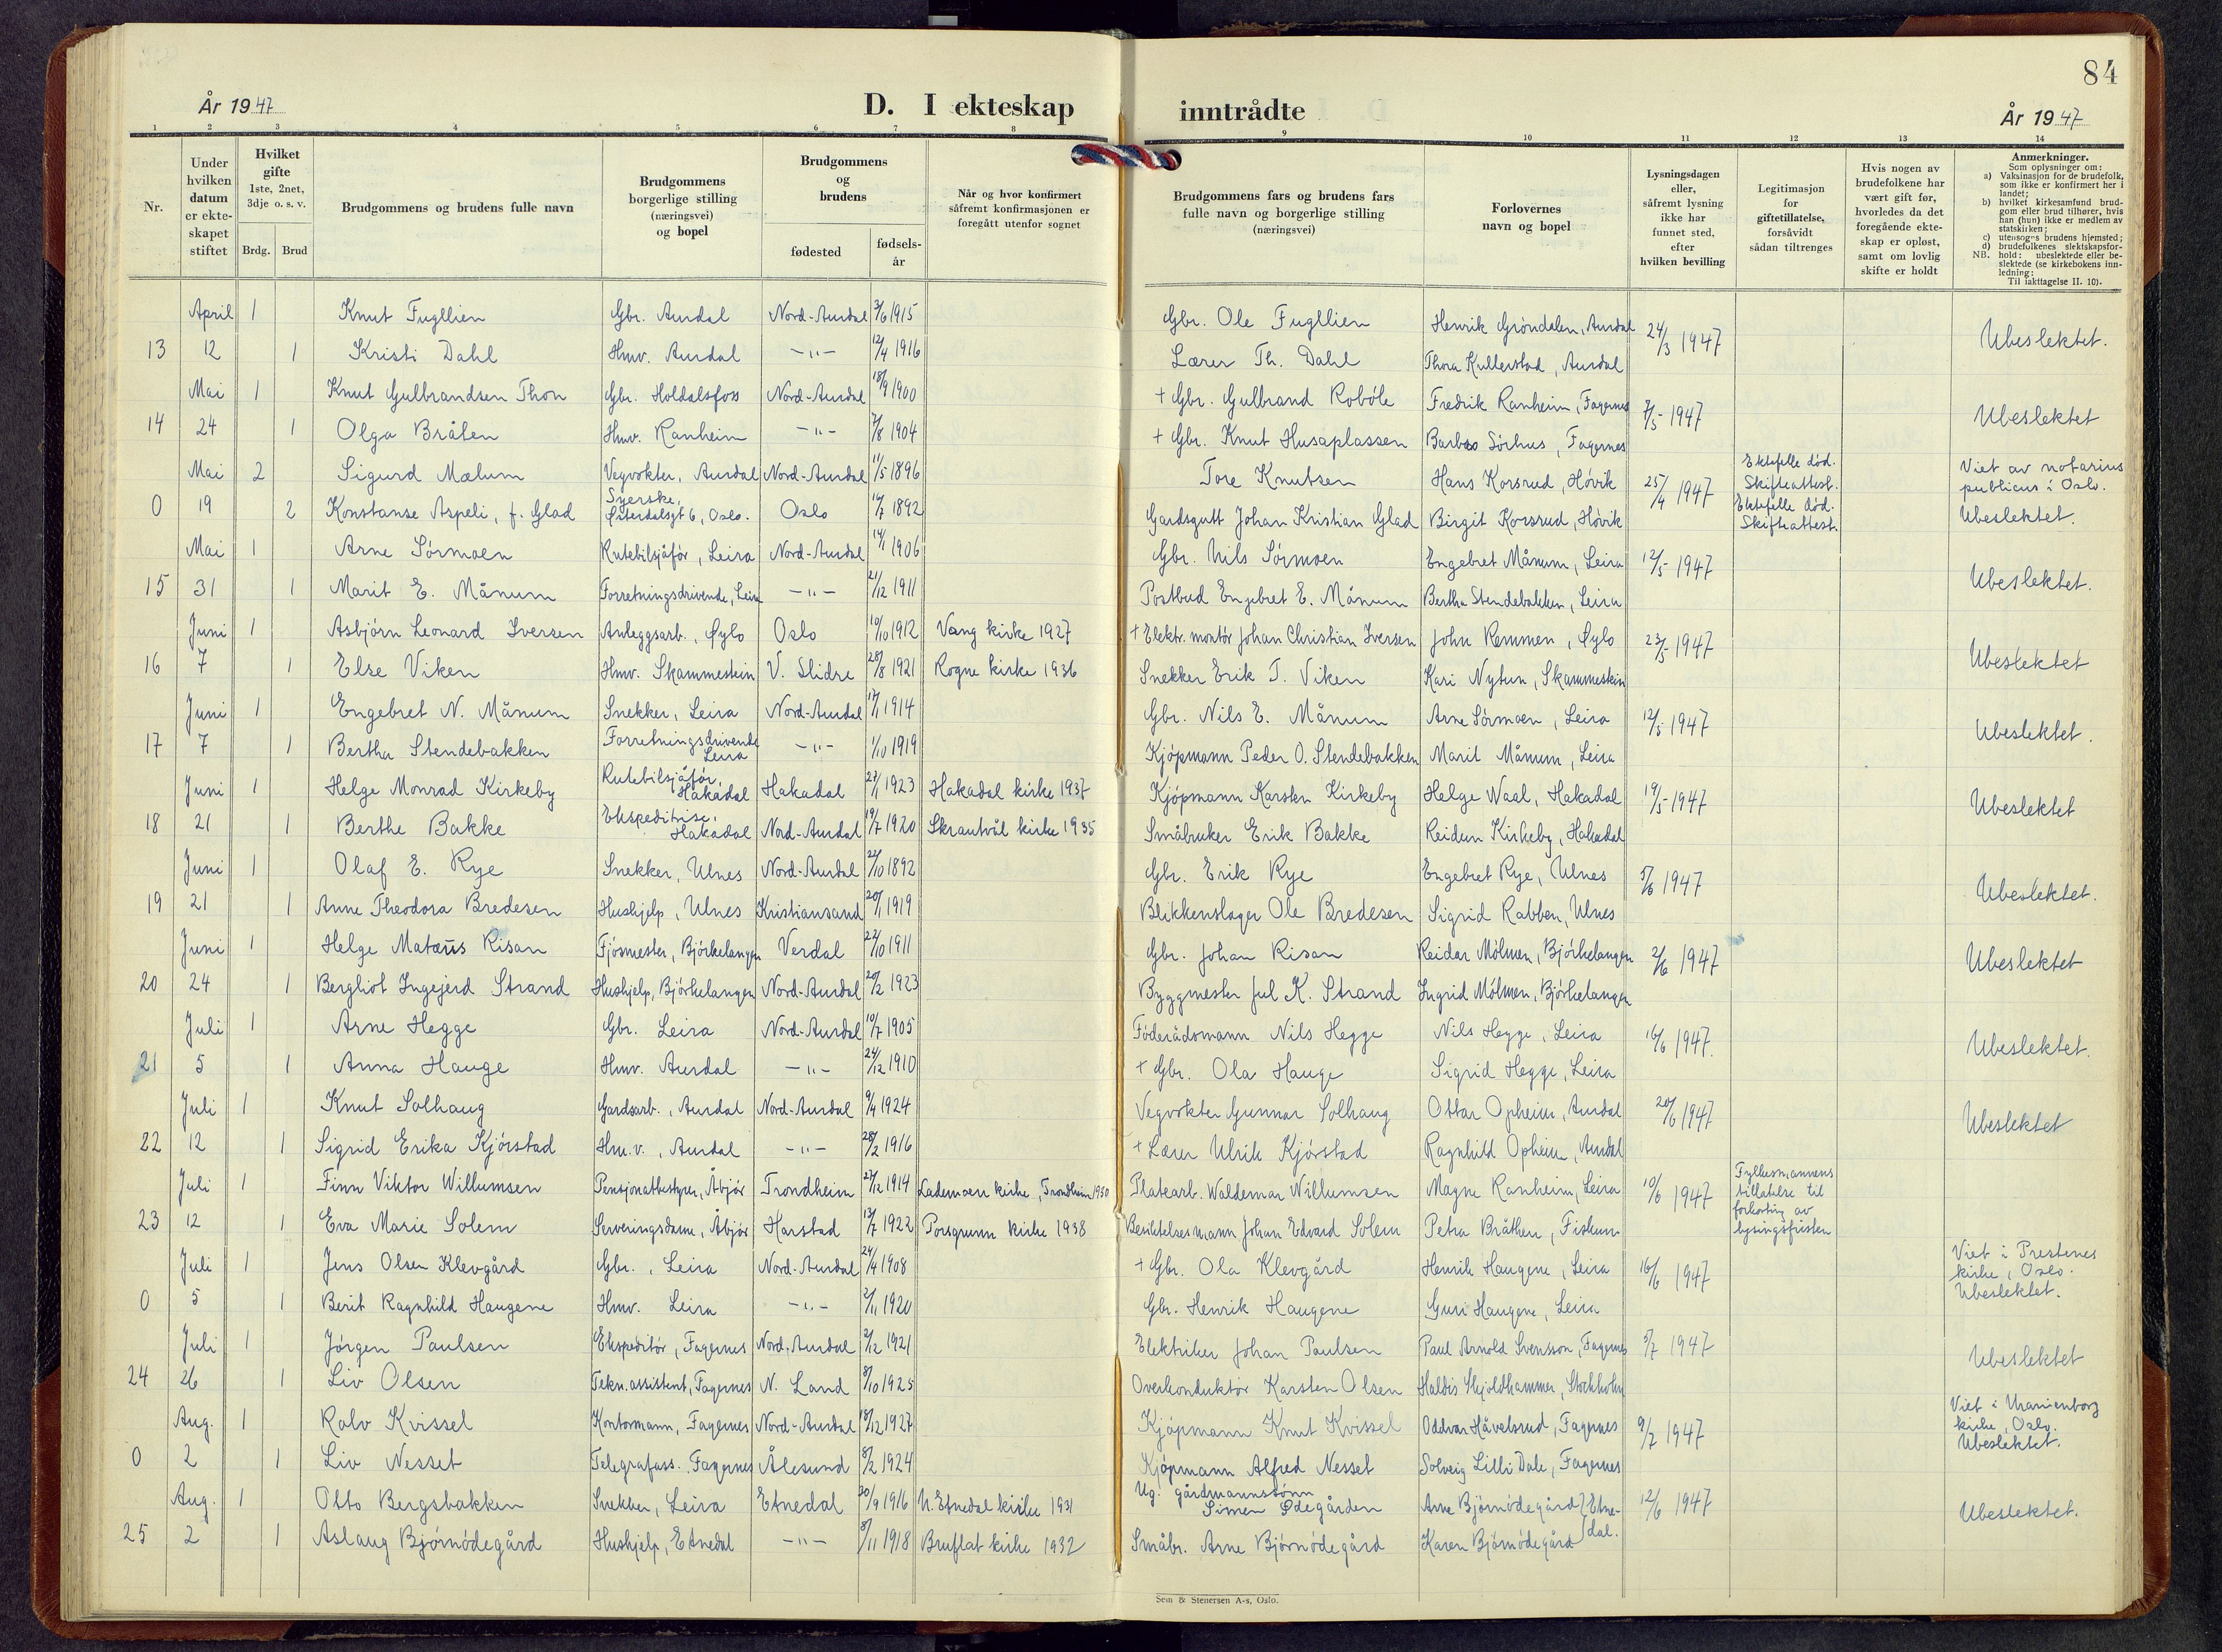 84
År 1947
D. I ekteskap inntrådte
År 1947
1 2 3 4 5 6 7 8 9 10 11 12 13 14
Nr.
Under hvilken datum er ekteskapet stiftet
Hvilket gifte 1ste, 2net, 3dje o. s. v.
Brdg. Brud
Brudgommens og brudens fulle navn
Brudgommens borgerlige stilling (næringsvei) og bopel
Brudgommens og brudens
fødested
fødselsår
Når og hvor konfirmert såfremt konfirmasjonen er foregått utenfor sognet
Brudgommens fars og brudens fars fulle navn og borgerlige stilling (næringsvei)
Forlovernes navn og bopel
Lysningsdagen eller, såfremt lysning ikke har funnet sted, efter hvilken bevilling
Legitimasjon for giftetillatelse, forsåvidt sådan tiltrenges
Hvis nogen av brudefolkene har vært gift før, hvorledes da det foregående ekteskap er opløst, samt om lovlig skifte er holdt
Anmerkninger.
Som oplysninger om:
a) Vaksinasjon for de brudefolk, som ikke er konfirmert her i landet;
b) hvilket kirkesamfund brudgom eller brud tilhører, hvis han (hun) ikke er medlem av statskirken;
c) utensogns brudens hjemsted;
d) brudefolkenes slektskapsforhold: ubeslektede eller beslektede (se kirkebokens innledning:
NB. Til iakttagelse II. 10).
April 1 Knut Fugllien Gbr. Aurdal Nord-Aurdal 3/6 1915 Gbr. Ole Fugllien Henrik Gröndalen, Aurdal 24/3 1947 Ubeslektet.
13 12 1 Kristi Dahl Hmv. Aurdal -"- 12/4 1916 Lærer Th. Dahl Thora Kullerstad, Aurdal
Mai 1 Knut Gulbrandsen Thon Gbr. Holdalsfoss Nord-Aurdal 18/9 1900 + Gbr. Gulbrand Roböle Fredrik Ranheim, Fagernes 7/5 - 1947 Ubeslektet
14 24 1 Olga Bråten Hmv. Ranheim -"- 7/8 1904 + Gbr. Knut Husaplassen Barbro Sörhus, Fagernes
Mai 2 Sigurd Mælum Vegvokter, Aurdal Nord-Aurdal 11/5 1896 Tore Knutsen Hans Korsrud, Hövik 25/4 1947 Ektefelle död. Skifteattest. Viet av notarius publicus i Oslo.
0 19 2 Konstanse Aspeli, f. Glad Syerske, Østerdalsgt 6, Oslo. Oslo 14/7 1892 Gardsgutt Johan Kristian Glad Birgit Korsrud, Hövik Ektefelle död. Skifteattest. Ubeslektet.
Mai 1 Arne Sörmoen Rutebilsjåför, Leira Nord-Aurdal 14/1 1906 Gbr. Nils Sörmoen Engebret Månum, Leira 12/5 - 1947 Ubeslektet.
15 31 1 Marit E. Månum Forretningsdrivende, Leira -"- 21/12 1911 Postbud Engebret E. Månum Bertha Stendebakken, Leira
Juni 1 Asbjörn Leonard Iversen Anleggsarb., Øylo Oslo 10/10 1912 Vang kirke 1927 + Elektr. montör Johan Christian Iversen John Remmen, Øylo 23/5 - 1947 Ubeslektet
16 7 1 Else Viken Hmv. Skammestein V. Slidre 28/8 1921 Rogne kirke 1936 Snekker Erik T. Viken Kari Nytun, Skammestein
Juni 1 Engebret N. Månum Snekker, Leira Nord-Aurdal 17/1 1914 Gbr. Nils E. Månum Arne Sörmoen, Leira 12/5 - 1947 Ubeslektet.
17 7 1 Bertha Stendebakken Forretningsdrivende Leira -"- 1/10 1919 Kjöpmann Peder O. Stendebakken Marit Månum, Leira
Juni 1 Helge Monrad Kirkeby Rutebilsjåför, Hakadal Hakadal 21/1 1923 Hakadal kirke 1937 Kjöpmann Karsten Kirkeby Helge Waal, Hakadal 19/5 - 1947 Ubeslektet
18 21 1 Berthe Bakke Ekspeditrise, Hakadal Nord-Aurdal 19/7 1920 Skrautvål kirke 1935 Småbruker Erik Bakke Reidun Kirkeby, Hakadal
Juni 1 Olaf E. Rye Snekker, Ulnes Nord-Aurdal 22/10 1892 Gbr. Erik Rye Engebret Rye, Ulnes 5/6 1947 Ubeslektet.
19 21 1 Anne Theodora Bredesen Hushjelp, Ulnes Kristiansand 20/1 1919 Blikkenslager Ole Bredesen Sigrid Rabben, Ulnes
Juni 1 Helge Matæus Risan Fjösmester, Bjørkelangen Verdal 22/10 1911 Gbr. Johan Risan Reidar Mölmen, Björkelangen 2/6 1947 Ubeslektet
20 24 1 Bergliot Ingejerd Strand Hushjelp, Björkelangen Nord-Aurdal 20/2 1923 Byggmester Jul K. Strand Ingrid Mölmen, Björkelangen
Juli 1 Arne Hegge Gbr. Leira Nord-Aurdal 10/7 1905 Föderådsmann Nils Hegge Nils Hegge, Leira 16/6 1947. Ubeslektet.
21 5 1 Anna Hauge Hmv. Aurdal -"- 24/12 1910 + Gbr. Ola Hauge Sigrid Hegge, Leira
Juli 1 Knut Solhaug Gardsarb., Aurdal Nord-Aurdal 9/4 1924 Vegvokter Gunnar Solhaug Ottar Opheim, Aurdal 20/6 1947 Ubeslektet
22 12 1 Sigrid Erika Kjörstad Hm.v., Aurdal -"- 28/2 1916 + Lærer Ulrik Kjörstad Ragnhild Opheim, Aurdal
Juli 1 Finn Viktor Willumsen Pensjonatbestyrer, Åbjör Trondheim 27/12 1914 Lademoen kirke, Trondheim 1930 Platearb. Waldemar Willumsen Magne Ranheim, Leira 10/6 1947 Fylkesmannens tillatelse til forkorting av lysingsfristen
23 12 1 Eva Marie Solem Serveringsdame, Åbjör Harstad 13/7 1922 Porsgrunn kirke 1938 Johan Edvard Solem Petra Bråthen, Fiskum
Juli 1 Jens Olsen Klevgård Gbr., Leira Nord-Aurdal 24/4 1908 + Gbr. Ola Klevgård Henrik Haugene, Leira 16/6 1947 Viet i Prestenes kirke, Oslo. Ubeslektet.
0 5 1 Berit Ragnhild Haugene Hmv. Leira -"- 2/11 1920 Gbr. Henrik Haugene Guri Haugene, Leira
Juli 1 Jörgen Paulsen Ekspeditör, Fagernes Nord-Aurdal 2/12 1921 Elektriker Johan Paulsen Paul Arnold Svensson, Fagernes 5/7 1947 Ubeslektet
24 26 1 Liv Olsen Tekn. assistent, Fagernes N. Land 8/10 1925 Overkonduktör Karsten Olsen Haldis Skjoldhammer, Stockholm
Aug. 1 Rolv Kvissel Kontormann, Fagernes Nord-Aurdal 18/12 1927 Kjöpmann Knut Kvissel Oddvar Håvelsrud, Fagernes 9/7 1947 Viet i Uranienborg kirke, Oslo. Ubeslektet.
0 2 1 Liv Nesset Telegrafass. Fagernes Ålesund 8/2 1924 Kjöpmann Alfred Nesset Solveig Lilli Dale, Fagernes
Aug. 1 Otto Bergsbakken Snekker, Leira Etnedal 20/9 1916 N. Etnedal kirke 1931 Ug. gårdmannssönn Simen Ødegården Arne Björnödegård Etnedal. 12/6 1947 Ubeslektet.
25 2 1 Aslaug Björnödegård Hushjelp, Etnedal -"- 8/11 1918 Bruflat kirke 1932 Småbr. Arne Björnödegård Karen Björnödegård
Sem & Stenersen A-s, Oslo.